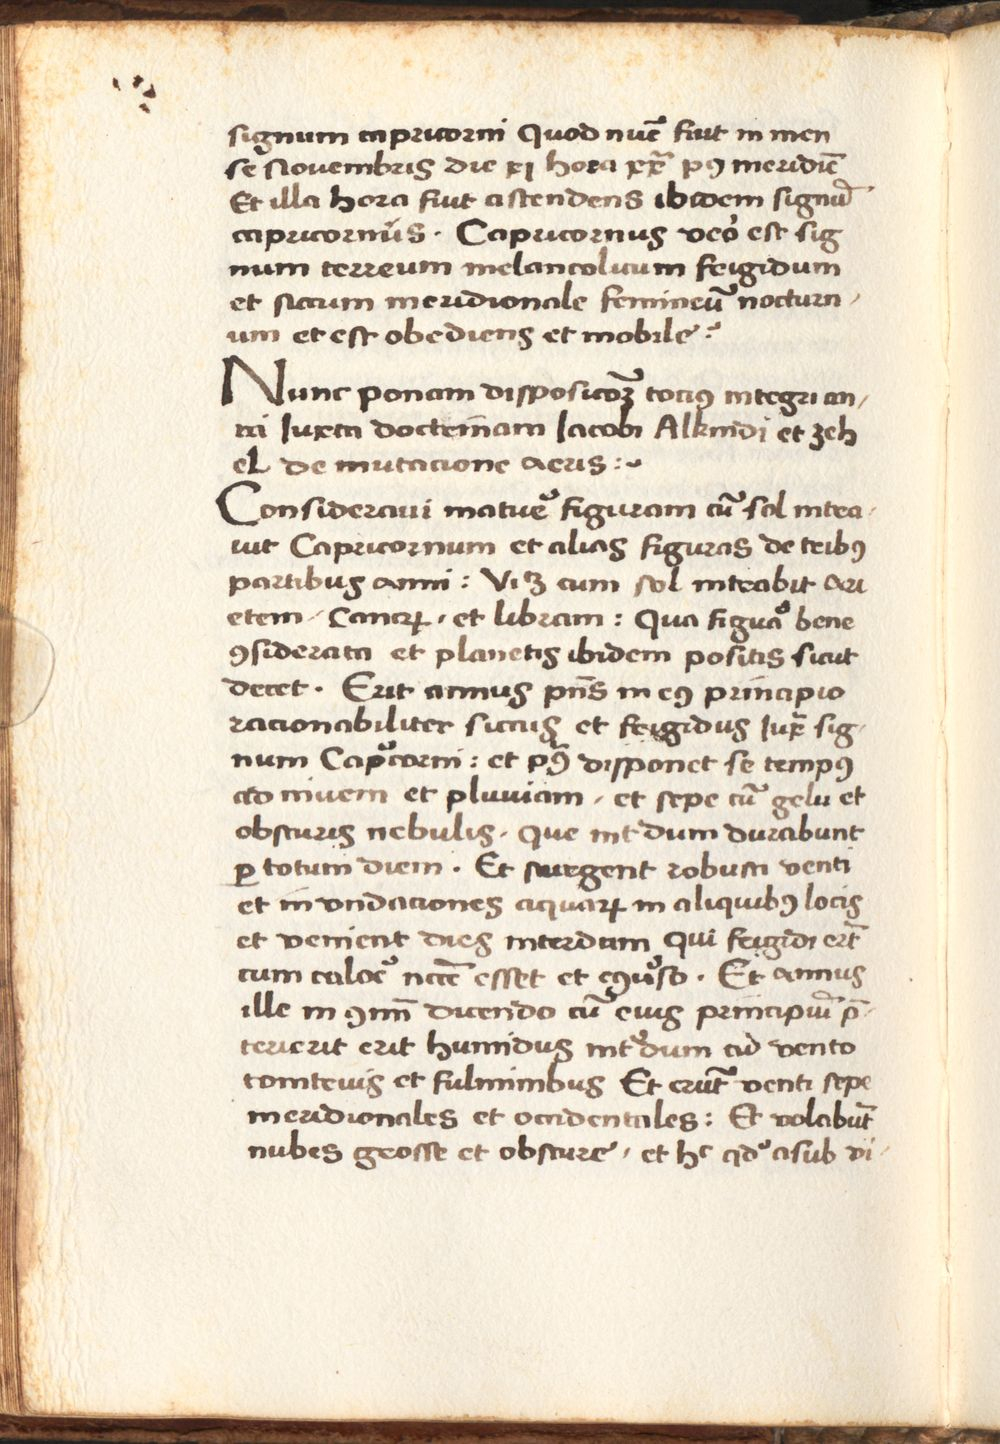 signum capricorni Quod nūc fuit in men
se Novembris die xj hora xxᵃ pꝰ meridiē
Et illa hora fuit ascendens ibidem signū
capricornus. Capricornus veͦo est sig
num terreum melancolicum frigidum
et siccum meridionale femineū nocturn,
um et est obediens et mobile:
Nunc ponam disposicoꝫ tocius integri an,
ni Iuxta doctrinam Iacobi Alkindi et zeh
el de mutacione aeris:~
Consideravi matuͦe figuram cū sol intra,
vit Capricornum et alias figuras de tribꝰ
partibus anni: Viꝫ cum sol intrabit Ari
etem, Cancꝝ, et libram: Qua figuͣa bene
ꝯsiderata et planetis ibidem positis sicut
decet. Erit annus pn̄s in eꝰ principio
racionabiliter siccus et frigidus Iuxͣ sig,
num Capͥcorni: et pꝰ disponet se tempꝰ
ad nivem et pluviam, et sepe cū gelu et
obscuris nebulis, que intͥdum durabunt
ꝑ totum diem. Et surgent robusti venti
et in vndaciones aquaꝝ in aliquibꝰ locis
et venient dies interdum qui frigidi erūt
cum caloͬ nātͤ esset et eꝯͥuso. Et annus
ille in ꝯmī dicendo cū eius principiū p̄,
terierit erit humidus intͥdum cū vento
tonitruis et fulminibus Et erūt venti sepe
meridionales et occidentales: Et volabūt
nubes grosse et obscure, et hͨ qdͦ asub vi,